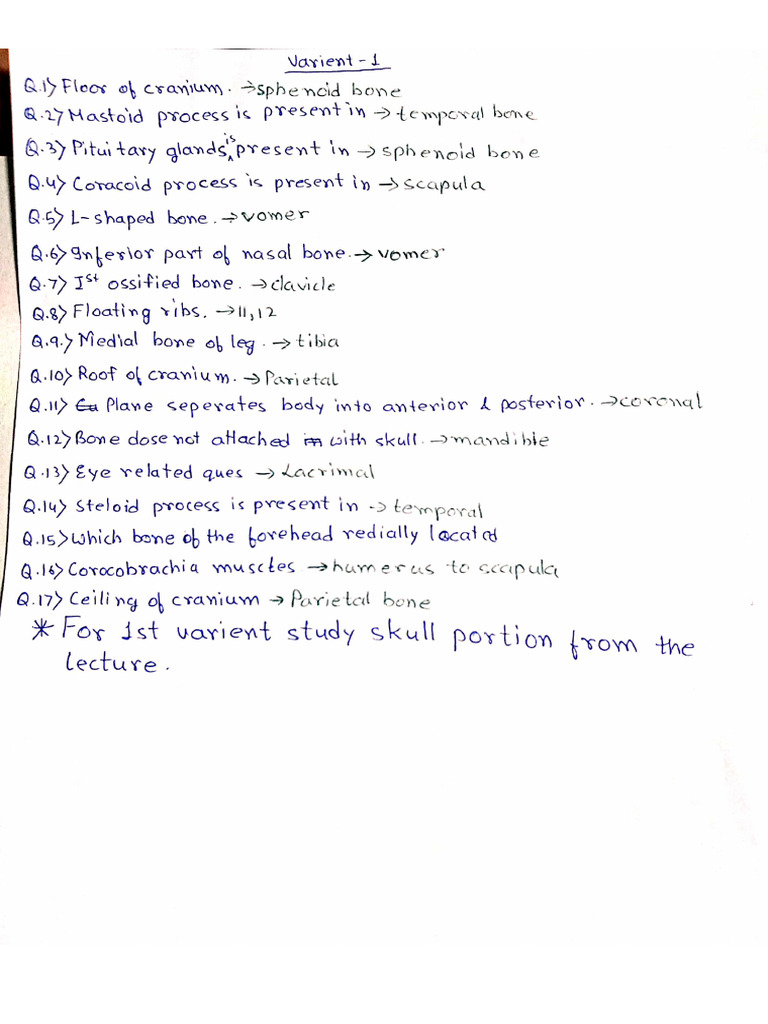 Varient - 1
Q.1> Floor of cranium. → sphenoid bone
Q.2> Mastoid process is present in → temporal bone
Q.3> Pituitary glands is present in → sphenoid bone
Q.4> Coracoid process is present in → scapula
Q.5> L-shaped bone. → vomer
Q.6> Inferior part of nasal bone. → vomer
Q.7> Ist ossified bone. → clavicle
Q.8> Floating ribs. → 11,12
Q.9.> Medial bone of leg. → tibia
Q.10> Roof of cranium. → Parietal
Q.11> Plane seperates body into anterior & posterior. → coronal
Q.12> Bone dose not attached with skull. → mandible
Q.13> Eye related ques → Lacrimal
Q.14> Steloid process is present in -> temporal
Q.15> Which bone of the forehead redially located
Q.16> Corocobrachia muscles → humerus to scapula
Q.17> Ceiling of cranium → Parietal bone
* For 1st varient study skull portion from the
lecture.